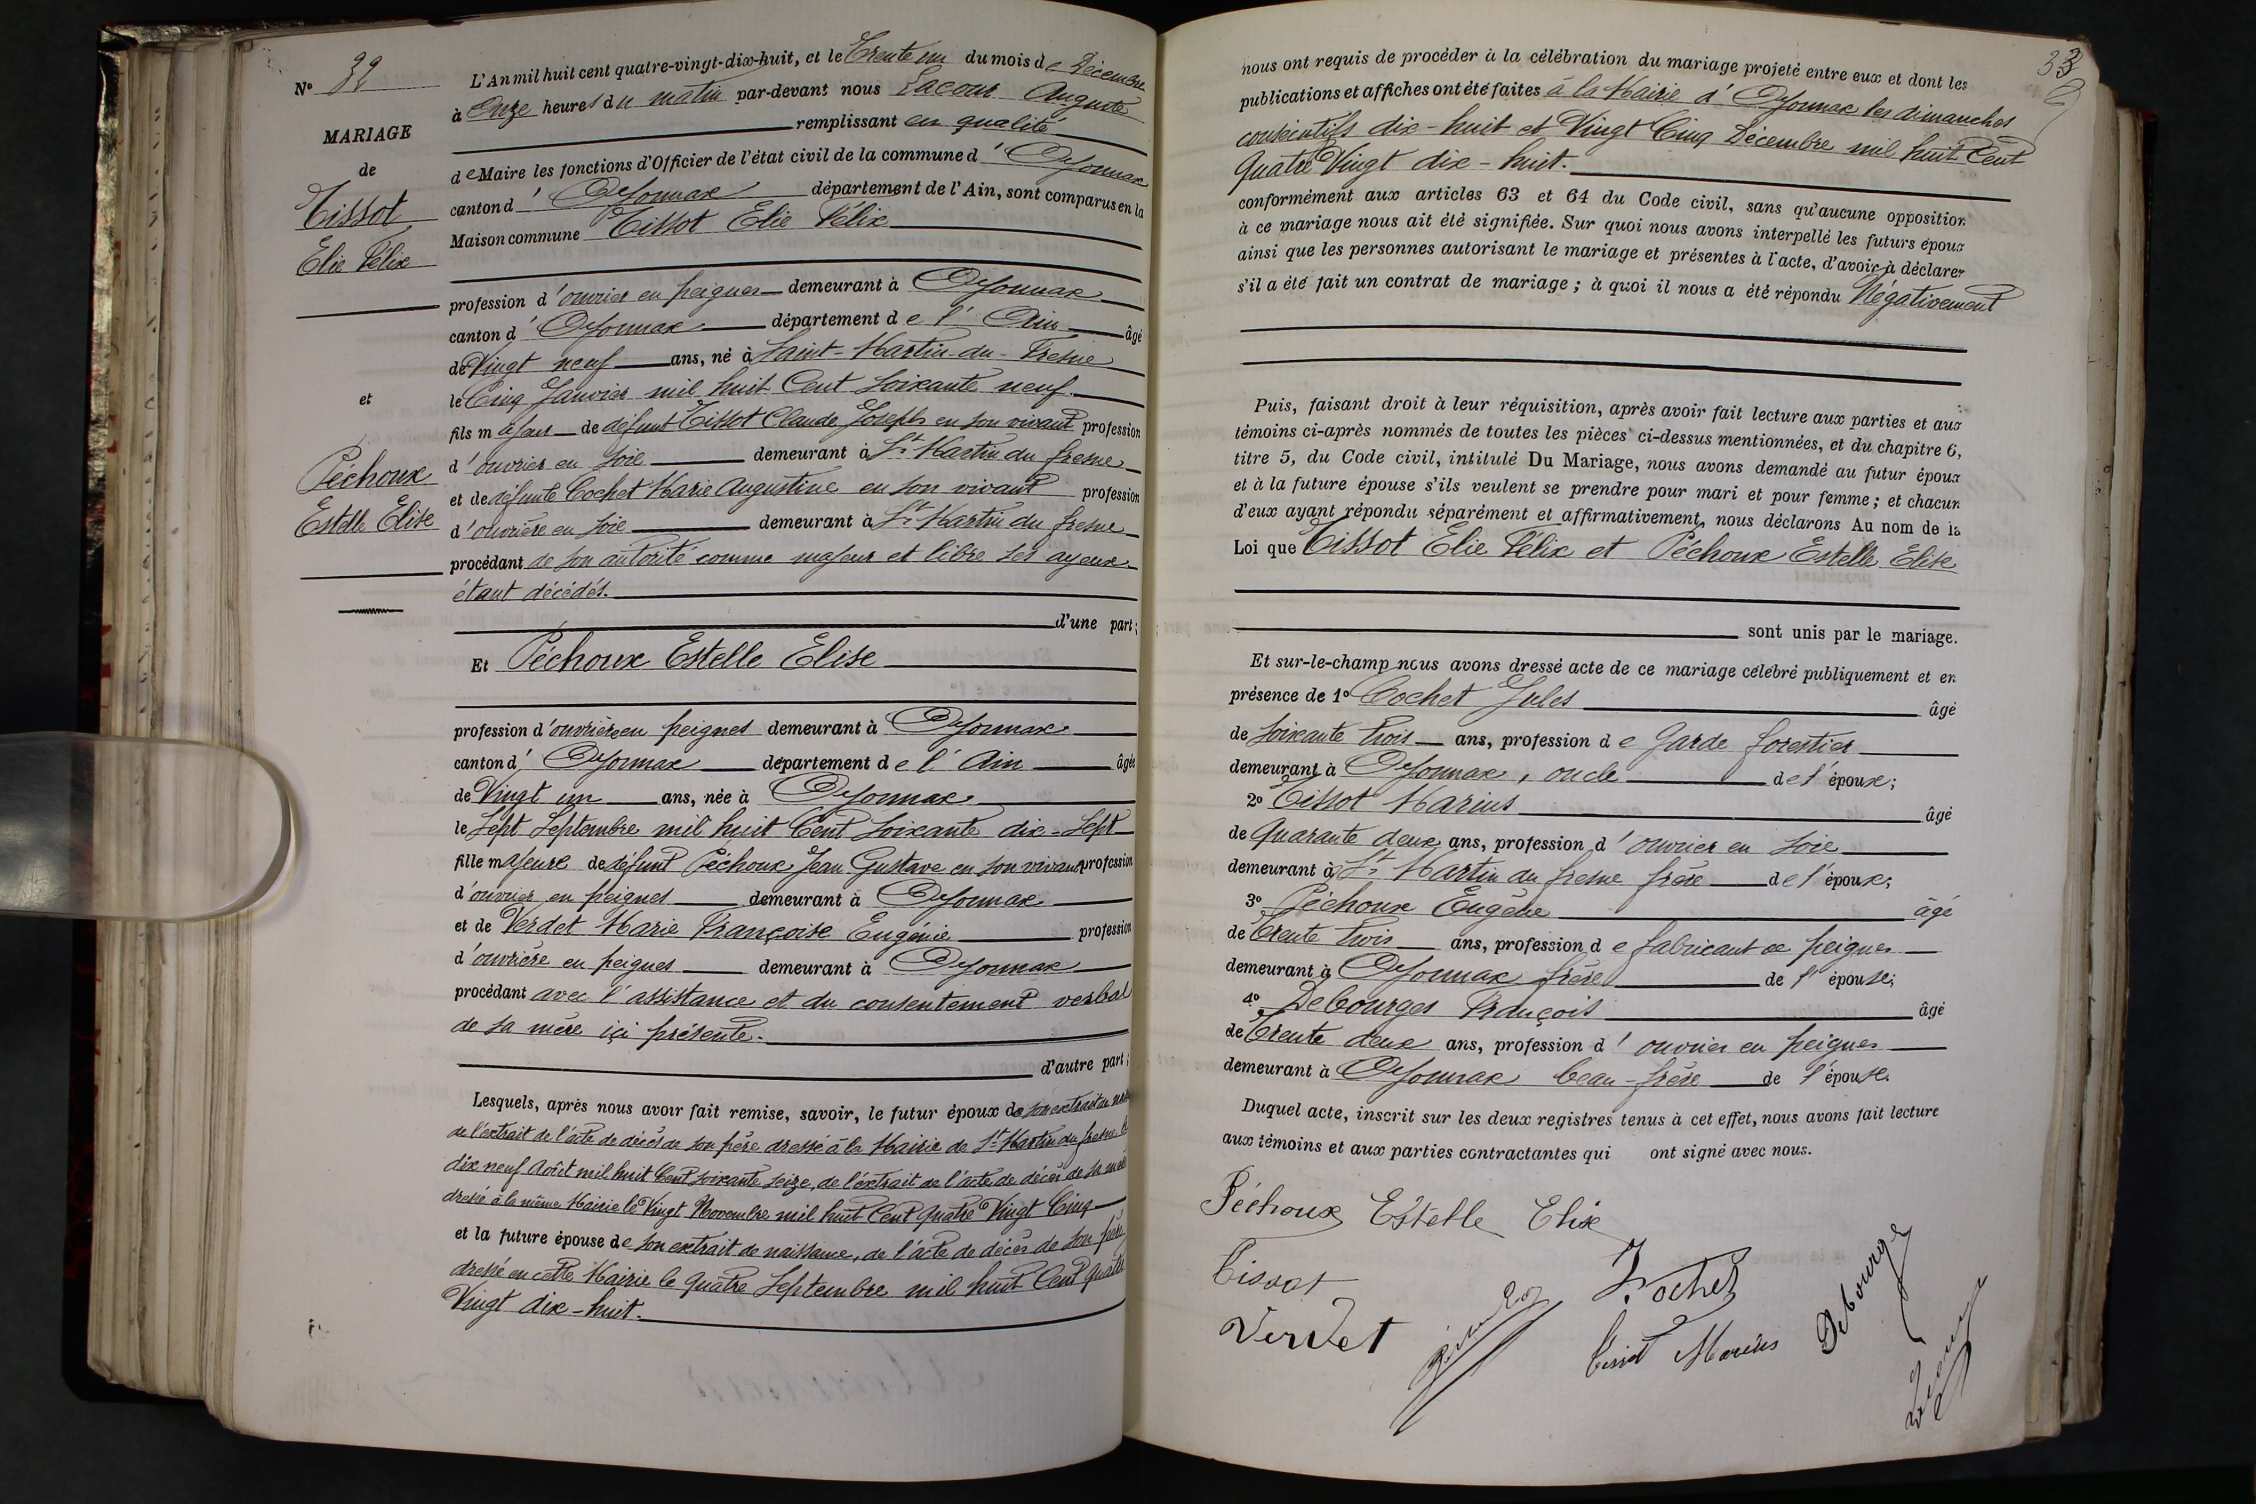 N° 32
MARIAGE
de
Tissot
Elie Félix
et
Péchoux
Estelle Elise
L'An mil huit cent quatre-vingt-dix-huit, et le Trente un du mois de Décembre
à Onze heures du matin par-devant nous Lacour Auguste
remplissant en qualité
de Maire les fonctions d'Officier de l'état civil de la commune d'Oyonnax
canton d'Oyonnax département de l'Ain, sont comparus en la
Maison commune Tissot Elie Félix
profession d'ouvrier en peignes demeurant à Oyonnax
canton d'Oyonnax département de l'Ain âgé
de Vingt neuf ans, né à Saint-Martin-du-Fresne
le Cinq Janvier mil huit Cent soixante neuf
fils majeur de défunt Tissot Claude Joseph en son vivant profession
d'ouvrier en soie demeurant à St Martin du fresne
et de défunte Cochet Marie Augustine en son vivant profession
d'ouvrière en soie demeurant à St Martin du fresne
procédant de son autorité comme majeur et libre ses ayeux
étant décédés.
d'une part;
Et Péchoux Estelle Elise
profession d'ouvrière en peignes demeurant à Oyonnax
canton d'Oyonnax département de l'Ain âgée
de Vingt un ans, née à Oyonnax
le Sept Septembre mil huit Cent soixante dix-sept
fille majeure de défunt Péchoux Jean Gustave en son vivant profession
d'ouvrier en peignes demeurant à Oyonnax
et de Verdet Marie Françoise Eugénie profession
d'ouvrière en peignes demeurant à Oyonnax
procédant avec l'assistance et du consentement verbal
de sa mère içi présente.
d'autre part;
Lesquels, après nous avoir fait remise, savoir, le futur époux de son extrait de
de l'extrait de l'acte de décès de son père dressé à la Mairie de St Martin du fresne le
dix neuf Août mil huit Cent soixante seize, de l'extrait de l'acte de décès de sa mère
dressé à la même Mairie le Vingt Novembre mil huit Cent Quatre Vingt Cinq
et la future épouse de son extrait de naissance, de l'acte de décès de son père
dressé en cette Mairie le Quatre Septembre mil huit Cent Quatre
Vingt dix-huit.
33
nous ont requis de procéder à la célébration du mariage projeté entre eux et dont les
publications et affiches ont été faites à la Mairie d'Oyonnax les dimanches
consécutifs dix-huit et Vingt Cinq Décembre mil huit Cent
Quatre Vingt dix-huit.
conformément aux articles 63 et 64 du Code civil, sans qu'aucune opposition
à ce mariage nous ait été signifiée. Sur quoi nous avons interpellé les futurs époux
ainsi que les personnes autorisant le mariage et présentes à l'acte, d'avoir à déclarer
s'il a été fait un contrat de mariage; à quoi il nous a été répondu Négativement
Puis, faisant droit à leur réquisition, après avoir fait lecture aux parties et aux
témoins ci-après nommés de toutes les pièces ci-dessus mentionnées, et du chapitre 6,
titre 5, du Code civil, intitulé Du Mariage, nous avons demandé au futur époux
et à la future épouse s'ils veulent se prendre pour mari et pour femme; et chacun
d'eux ayant répondu séparément et affirmativement, nous déclarons Au nom de la
Loi que Tissot Elie Félix et Péchoux Estelle Elise
sont unis par le mariage.
Et sur-le-champ nous avons dressé acte de ce mariage célébré publiquement et en
présence de 1° Cochet Jules âgé
de soixante trois ans, profession de Garde forestier
demeurant à Oyonnax, oncle de l'époux;
2° Tissot Marius âgé
de Quarante deux ans, profession d'ouvrier en soie
demeurant à St Martin du fresne frère de l'époux;
3° Péchoux Eugène âgé
de Trente trois ans, profession de fabricant de peignes
demeurant à Oyonnax frère de l'épouse;
4° Debourges François âgé
de Trente deux ans, profession d'ouvrier en peignes
demeurant à Oyonnax beau-frère de l'épouse.
Duquel acte, inscrit sur les deux registres tenus à cet effet, nous avons fait lecture
aux témoins et aux parties contractantes qui ont signé avec nous.
Péchoux Estelle Elise
Tissot
J. Cochet
Debourge
Verdet
Tissot Marius